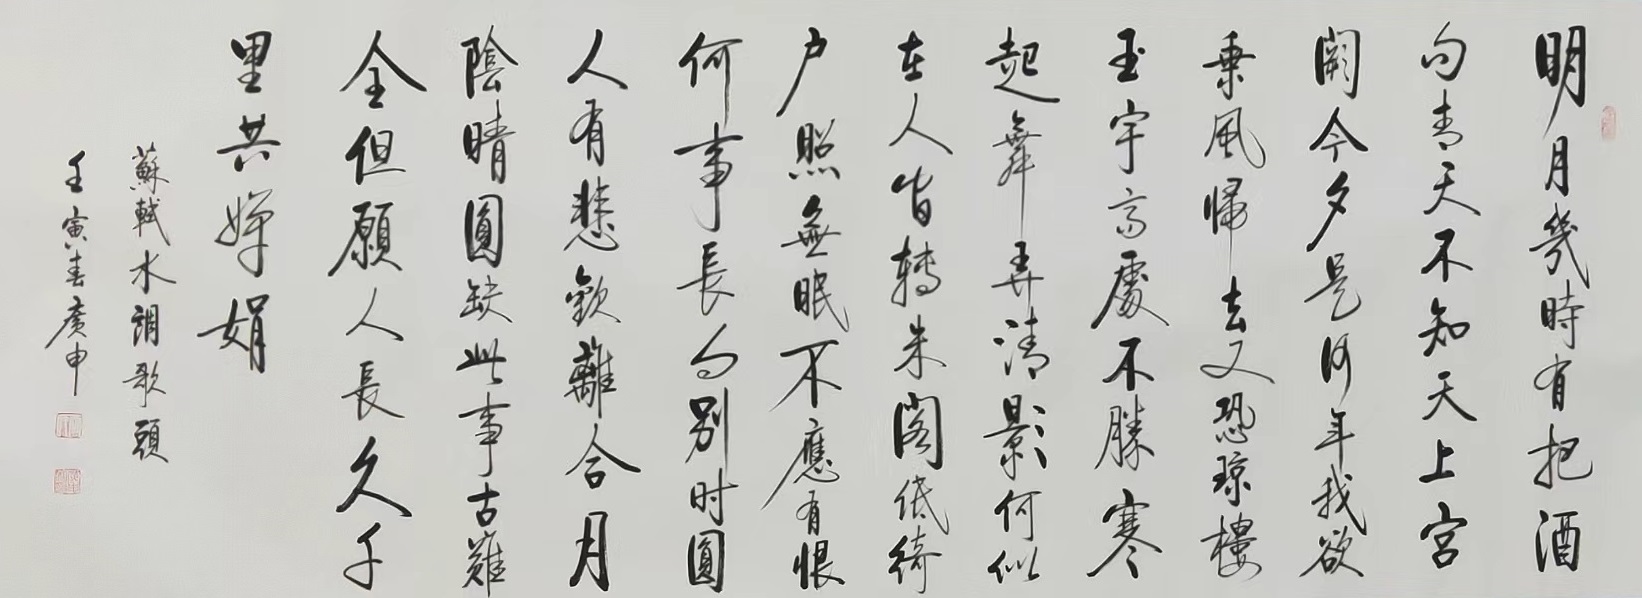 明月幾時有把酒
向青天不知天上宫
闕今夕是何年我欲
乗風帰去又恐琼樓
玉宇高處不勝寒
起舞弄清影何似
在人皆轉朱閣低綺
户照無眠不應有恨
何事長向別时圓
人有悲歡離合月
陰晴圓缺此事古難
全但願人長久千
里共嬋娟
蘇軾水調歌頭
壬寅春廣申